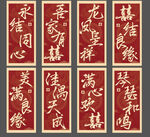 永结同心
吾家有囍
龙凤呈祥
囍结良缘
美满良缘
佳偶天成
满心欢囍
琴瑟和鸣